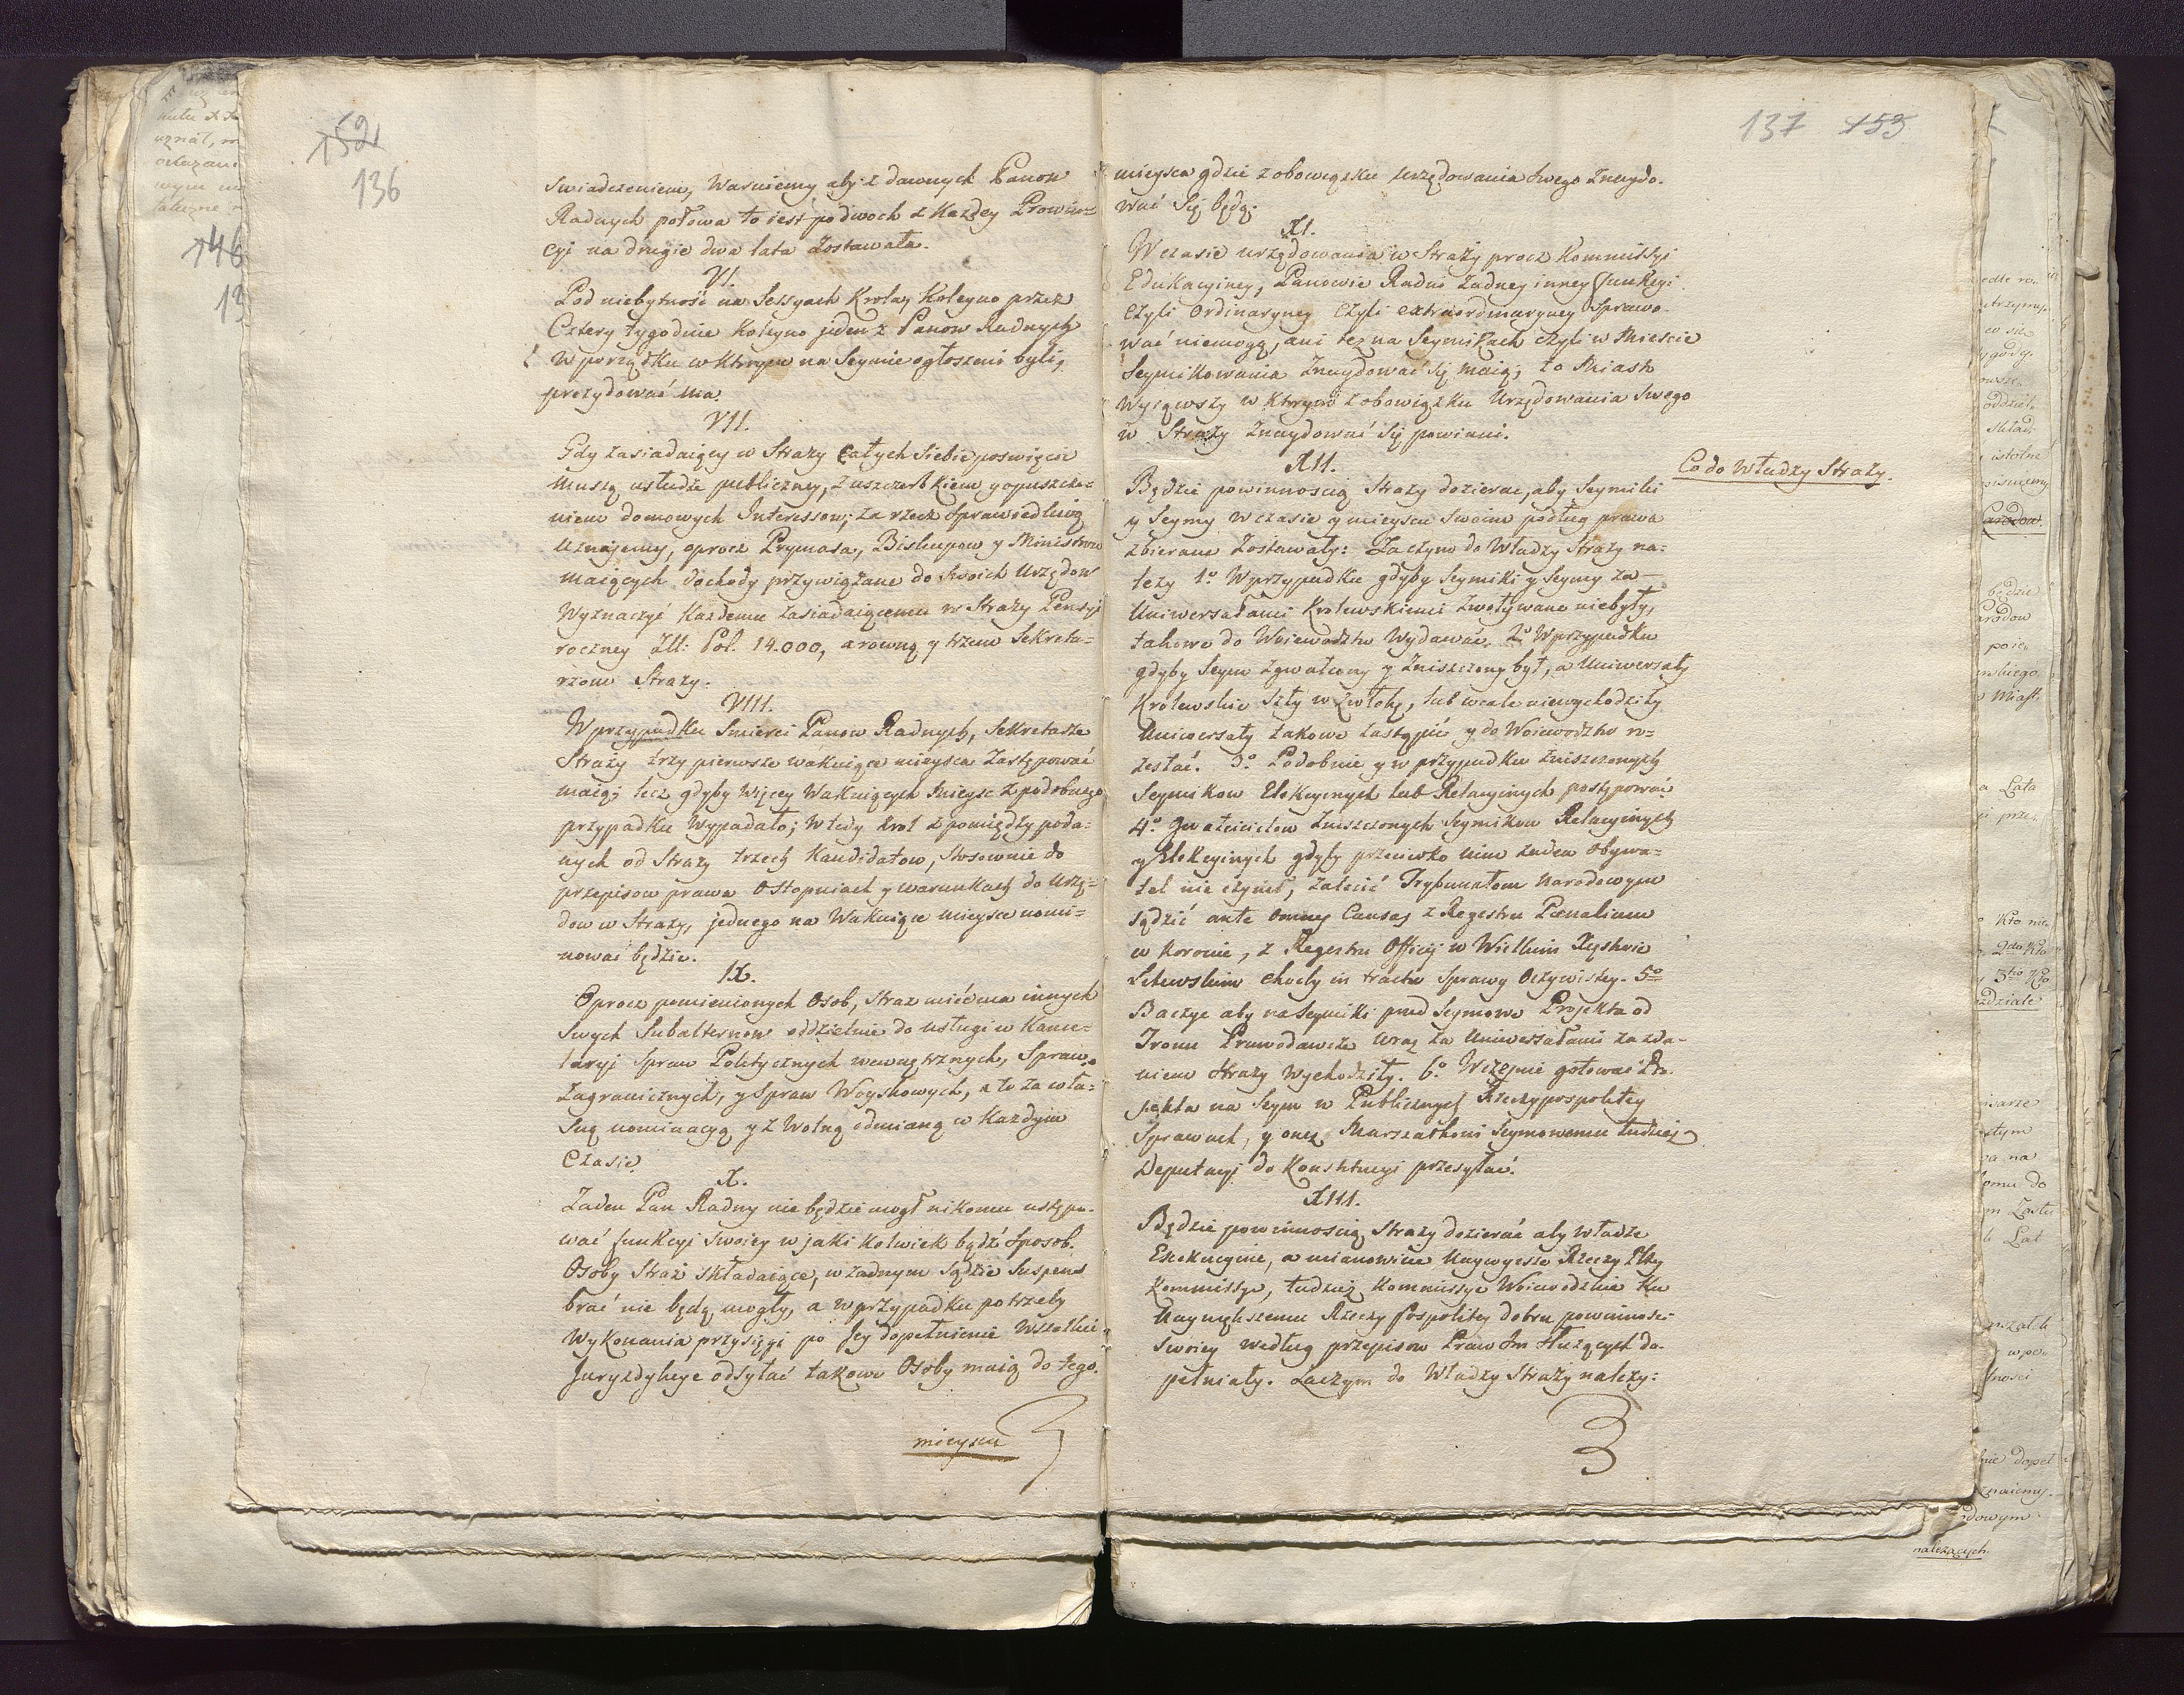 152
136
swiadczeniem, Waruiemy aby z dawnych Panow
Radnych połowa to iest po dwoch z Każdey Prowin=
cyi na drugie dwa lata zostawała.
VI.
Pod niebytność na Sessyach Krola, Koleyno przez
Cztery tygodnie Koleyno jeden z Panow Radnych
w porządku w Ktorym na Seymie ogłoszeni byli,
prezydować ma.
VII.
Gdy zasiadaiący w Straży całych Siebie poswięcić
muszą usłudze publiczney, z uszczerbkiem y opuszcze=
niem domowych Interessow; za rzecz Sprawiedliwą
Uznajemy, oprocz Prymasa, Biskupow y Ministrow
maiących dochody przywiązane do Swoich Urzędow
Wyznaczyć Każdemu zasiadaiącemu w Straży Pensyi
roczney Zll: Pol. 14.000, a rowną y trzem Sekreta=
rzom Straży.
VIII.
W przypadku Smierci Panow Radnych, Sekretarze
Straży trzy pierwsze wakuiące mieysca Zastępować
maią; lecz gdyby więcey Wakuiących Mieysc z podobnego
przypadku Wypadało; Wtedy Krol z pomiędzy poda=
nych od Straży trzech Kandidatow, Stosownie do
przepisow prawa O Stopniach y warunkach do Urzę=
dow w Straży, jednego na Wakuiące mieysce nomi=
nować będzie.
IX.
Oprocz pomienionych Osob, Straż mieć ma innych
Swych Subalternow oddzielnie do usługi w Kance=
laryi Spraw Politycznych wewnętrznych, Spraw
Zagranicznych, y Spraw Woyskowych, a to za wła=
sną nominacyą y z Wolną odmianą w Każdym
Czasie.
X.
Żaden Pan Radny nie będzie mogł nikomu ustępo=
wać funkcyi Swoiey w jaki Kolwiek bądź Sposob.
Osoby Straż składaiące, w żadnym Sądzie Suspens
brać nie będą mogły, a w przypadku potrzeby
Wykonania przysięgi po Jey dopełnienie Wszelkie
Juryzdykcye odsyłać takowe Osoby maią do tego.
mieysca
137 153
mieysca gdzie z obowiązku urzędowania Swego Znaydo=
wać Się będą.
XI.
W czasie urzędowania w Straży procz Kommissyi
Edukacyiney, Panowie Radni żadney inney funkcyi
czyli Ordinaryney czyli extraordinaryney Sprawo=
wać niemogą, ani też na Seymikach czyli w Miescie
Seymikowania Znaydować Się maią, to Miasto
Wyiąwszy w Ktorym z obowiązku Urzędowania Swego
w Straży Znaydować Się powinni.
XII.
Co do Władzy Straży.
Będzie powinnoscią Straży dozierać, aby Seymiki
y Seymy w czasie y mieyscu Swoim podług prawa
zbierane Zostawały: Zaczym do Władzy Straży na=
leży 1o. W przypadku gdyby Seymiki y Seymy za
Uniwersałami Krolewskiemi zwoływane niebyły,
takowe do Woiewodztw Wydawać. 2o W przypadku
gdyby Seym zgwałcony y Zniszczony był, a Uniwersały
Krolewskie Szły w Zwłokę, lub wcale niewychodziły
Uniwersały takowe zastąpić y do Woiewodztw ro=
zesłać. 3o. Podobnie y w przypadku Zniszczonych
Seymikow Elekcyinych lub Relacyinych postępować
4o. Gwałcicielow Zniszczonych Seymikow Relacyinych
y Elekcyinych gdyby przeciwko nim żaden Obywa=
tel nie czynił, zalecić Trybunałom Narodowym
sądzić ante omnes Causas z Regestru Pœnalium
w Koronie, z Regestru Officij w Wielkim Xięstwie
Litewskim choćby in tractu Sprawy Oczywistey. 5o
Baczyć aby na Seymiki przed Seymowe Projekta od
Tronu Prawodawcze wraz za Uniwersałami za zda=
niem Straży wychodziły. 6o. Wczesnie gotować Pro=
jekta na Seym w Publicznych Rzeczypospolitey
Sprawach, y onez Marszałkowi Seymowemu tudzież
Deputacyi do Konstytucyi przesyłać.
XIII.
Będzie powinnoscią Straży dozierać aby Władze
Exekucyine, a mianowicie Naywyższe Rzeczy Pltey
Kommissye, tudzież Kommissye Woiewodzkie Ku
Naywiększemu Rzeczy Pospolitey dobru powinnosci
Swoiey według przepisow Praw Im Służących do=
pełniały. Zaczym do Władzy Straży należy: